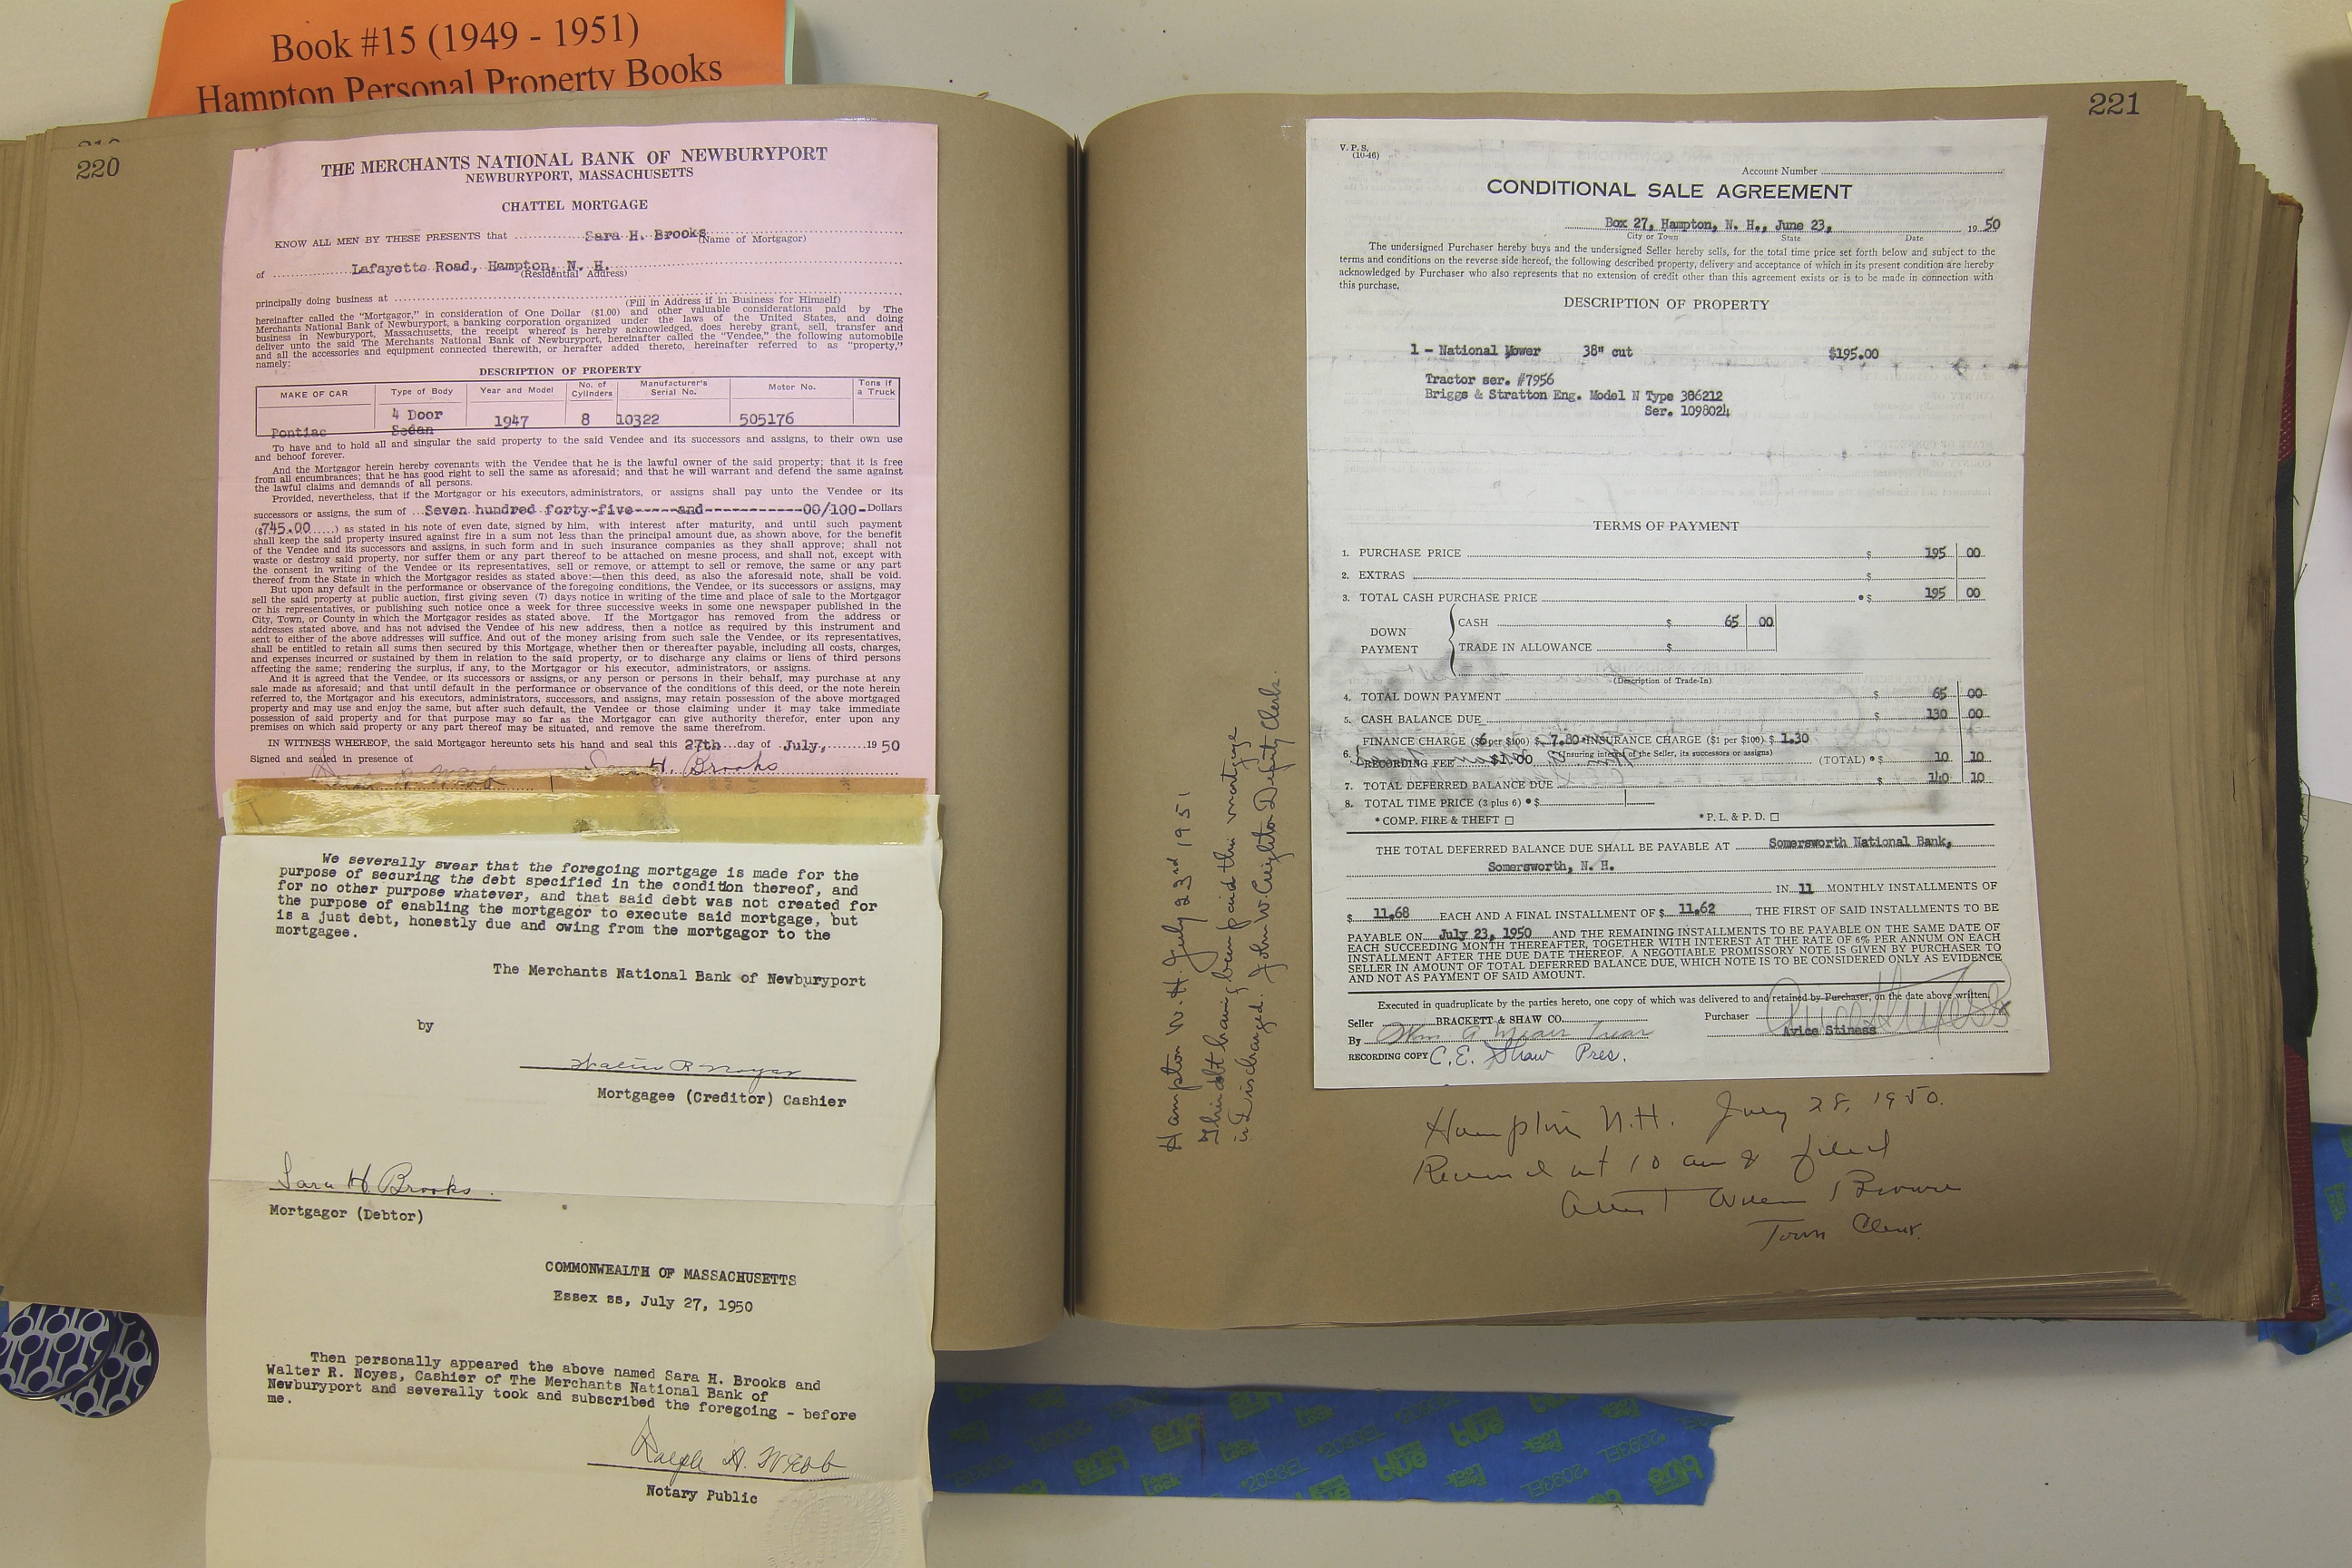 Book #15 (1949 - 1951)
Hampton Personal Property Books
220
THE MERCHANTS NATIONAL BANK OF NEWBURYPORT
NEWBURYPORT, MASSACHUSETTS
CHATTEL MORTGAGE
KNOW ALL MEN BY THESE PRESENTS that Sara H. Brooks
(Name of Mortgagor)
of Lafayette Road, Hampton, N. H.
(Residential Address)
principally doing business at
(Fill in Address if in Business for Himself)
hereinafter called the "Mortgagor," in consideration of One Dollar ($1.00) and other valuable considerations paid by The
Merchants National Bank of Newburyport, a banking corporation organized under the laws of the United States, and doing
business in Newburyport, Massachusetts, the receipt whereof is hereby acknowledged, does hereby grant, sell, transfer and
deliver unto the said The Merchants National Bank of Newburyport, hereinafter called the "Vendee," the following automobile
and all the accessories and equipment connected therewith, or herafter added thereto, hereinafter referred to as "property,"
namely:
DESCRIPTION OF PROPERTY
MAKE OF CAR Type of Body Year and Model No. of Cylinders Manufacturer's Serial No. Motor No. Tons if a Truck
Pontiac 4 Door Sedan 1947 8 10322 505176
To have and to hold all and singular the said property to the said Vendee and its successors and assigns, to their own use
and behoof forever.
And the Mortgagor herein hereby covenants with the Vendee that he is the lawful owner of the said property; that it is free
from all encumbrances; that he has good right to sell the same as aforesaid; and that he will warrant and defend the same against
the lawful claims and demands of all persons.
Provided, nevertheless, that if the Mortgagor or his executors, administrators, or assigns shall pay unto the Vendee or its
successors or assigns, the sum of Seven hundred forty-five-----and-----------00/100-Dollars
($745.00) as stated in his note of even date, signed by him, with interest after maturity, and until such payment
shall keep the said property insured against fire in a sum not less than the principal amount due, as shown above, for the benefit
of the Vendee and its successors and assigns, in such form and in such insurance companies as they shall approve; shall not
waste or destroy said property, nor suffer them or any part thereof to be attached on mesne process, and shall not, except with
the consent in writing of the Vendee or its representatives, sell or remove, or attempt to sell or remove, the same or any part
thereof from the State in which the Mortgagor resides as stated above:—then this deed, as also the aforesaid note, shall be void.
But upon any default in the performance or observance of the foregoing conditions, the Vendee, or its successors or assigns, may
sell the said property at public auction, first giving seven (7) days notice in writing of the time and place of sale to the Mortgagor
or his representatives, or publishing such notice once a week for three successive weeks in some one newspaper published in the
City, Town, or County in which the Mortgagor resides as stated above. If the Mortgagor has removed from the address or
addresses stated above, and has not advised the Vendee of his new address, then a notice as required by this instrument and
sent to either of the above addresses will suffice. And out of the money arising from such sale the Vendee, or its representatives,
shall be entitled to retain all sums then secured by this Mortgage, whether then or thereafter payable, including all costs, charges,
and expenses incurred or sustained by them in relation to the said property, or to discharge any claims or liens of third persons
affecting the same; rendering the surplus, if any, to the Mortgagor or his executor, administrators, or assigns.
And it is agreed that the Vendee, or its successors or assigns, or any person or persons in their behalf, may purchase at any
sale made as aforesaid; and that until default in the performance or observance of the conditions of this deed, or the note herein
referred to, the Mortgagor and his executors, administrators, successors, and assigns, may retain possession of the above mortgaged
property and may use and enjoy the same, but after such default, the Vendee or those claiming under it may take immediate
possession of said property and for that purpose may so far as the Mortgagor can give authority therefor, enter upon any
premises on which said property or any part thereof may be situated, and remove the same therefrom.
IN WITNESS WHEREOF, the said Mortgagor hereunto sets his hand and seal this 27th day of July, 1950
Signed and sealed in presence of
Sara H. Brooks
We severally swear that the foregoing mortgage is made for the
purpose of securing the debt specified in the condition thereof, and
for no other purpose whatever, and that said debt was not created for
the purpose of enabling the mortgagor to execute said mortgage, but
is a just debt, honestly due and owing from the mortgagor to the
mortgagee.
The Merchants National Bank of Newburyport
by
Walter R Noyes
Mortgagee (Creditor) Cashier
Sara H Brooks.
Mortgagor (Debtor)
COMMONWEALTH OF MASSACHUSETTS
Essex ss, July 27, 1950
Then personally appeared the above named Sara H. Brooks and
Walter R. Noyes, Cashier of The Merchants National Bank of
Newburyport and severally took and subscribed the foregoing - before
me.
Ralph A. Webb
Notary Public
221
V. P. S.
(10-46)
Account Number
CONDITIONAL SALE AGREEMENT
Box 27, Hampton, N. H., June 23, 1950
City or Town State Date
The undersigned Purchaser hereby buys and the undersigned Seller hereby sells, for the total time price set forth below and subject to the
terms and conditions on the reverse side hereof, the following described property, delivery and acceptance of which in its present condition are hereby
acknowledged by Purchaser who also represents that no extension of credit other than this agreement exists or is to be made in connection with
this purchase.
DESCRIPTION OF PROPERTY
1 - National Mower 38" cut $195.00
Tractor ser. #7956
Briggs & Stratton Eng. Model N Type 386212
Ser. 1098024
TERMS OF PAYMENT
1. PURCHASE PRICE $ 195 00
2. EXTRAS $
3. TOTAL CASH PURCHASE PRICE • $ 195 00
DOWN PAYMENT
CASH $ 65 00
TRADE IN ALLOWANCE $
(Description of Trade-In)
4. TOTAL DOWN PAYMENT $ 65 00
5. CASH BALANCE DUE $ 130 00
6. FINANCE CHARGE ($6 per $100) $ 7.80 INSURANCE CHARGE ($1 per $100) $ 1.30
(Insuring interest of the Seller, its successors or assigns)
RECORDING FEE $1.00 (TOTAL) • $ 10 10
7. TOTAL DEFERRED BALANCE DUE $ 140 10
8. TOTAL TIME PRICE (3 plus 6) • $
* COMP. FIRE & THEFT ☐ * P. L. & P. D. ☐
THE TOTAL DEFERRED BALANCE DUE SHALL BE PAYABLE AT Somersworth National Bank,
Somersworth, N. H.
IN 11 MONTHLY INSTALLMENTS OF
$ 11.68 EACH AND A FINAL INSTALLMENT OF $ 11.62, THE FIRST OF SAID INSTALLMENTS TO BE
PAYABLE ON July 23, 1950 AND THE REMAINING INSTALLMENTS TO BE PAYABLE ON THE SAME DATE OF
EACH SUCCEEDING MONTH THEREAFTER, TOGETHER WITH INTEREST AT THE RATE OF 6% PER ANNUM ON EACH
INSTALLMENT AFTER THE DUE DATE THEREOF. A NEGOTIABLE PROMISSORY NOTE IS GIVEN BY PURCHASER TO
SELLER IN AMOUNT OF TOTAL DEFERRED BALANCE DUE, WHICH NOTE IS TO BE CONSIDERED ONLY AS EVIDENCE
AND NOT AS PAYMENT OF SAID AMOUNT.
Executed in quadruplicate by the parties hereto, one copy of which was delivered to and retained by Purchaser, on the date above written.
Seller BRACKETT & SHAW CO. Purchaser Avice Stiness
By Treas
Avice Stiness
RECORDING COPY C. E. Shaw Pres.
Hampton N.H. July 28, 1950.
Received at 10 am & filed
Attest Brown
Town Clerk.
Hampton N. H. July 23rd 1951
This debt having been paid this mortgage
is Discharged. John W. Creighton Deputy Clerk.